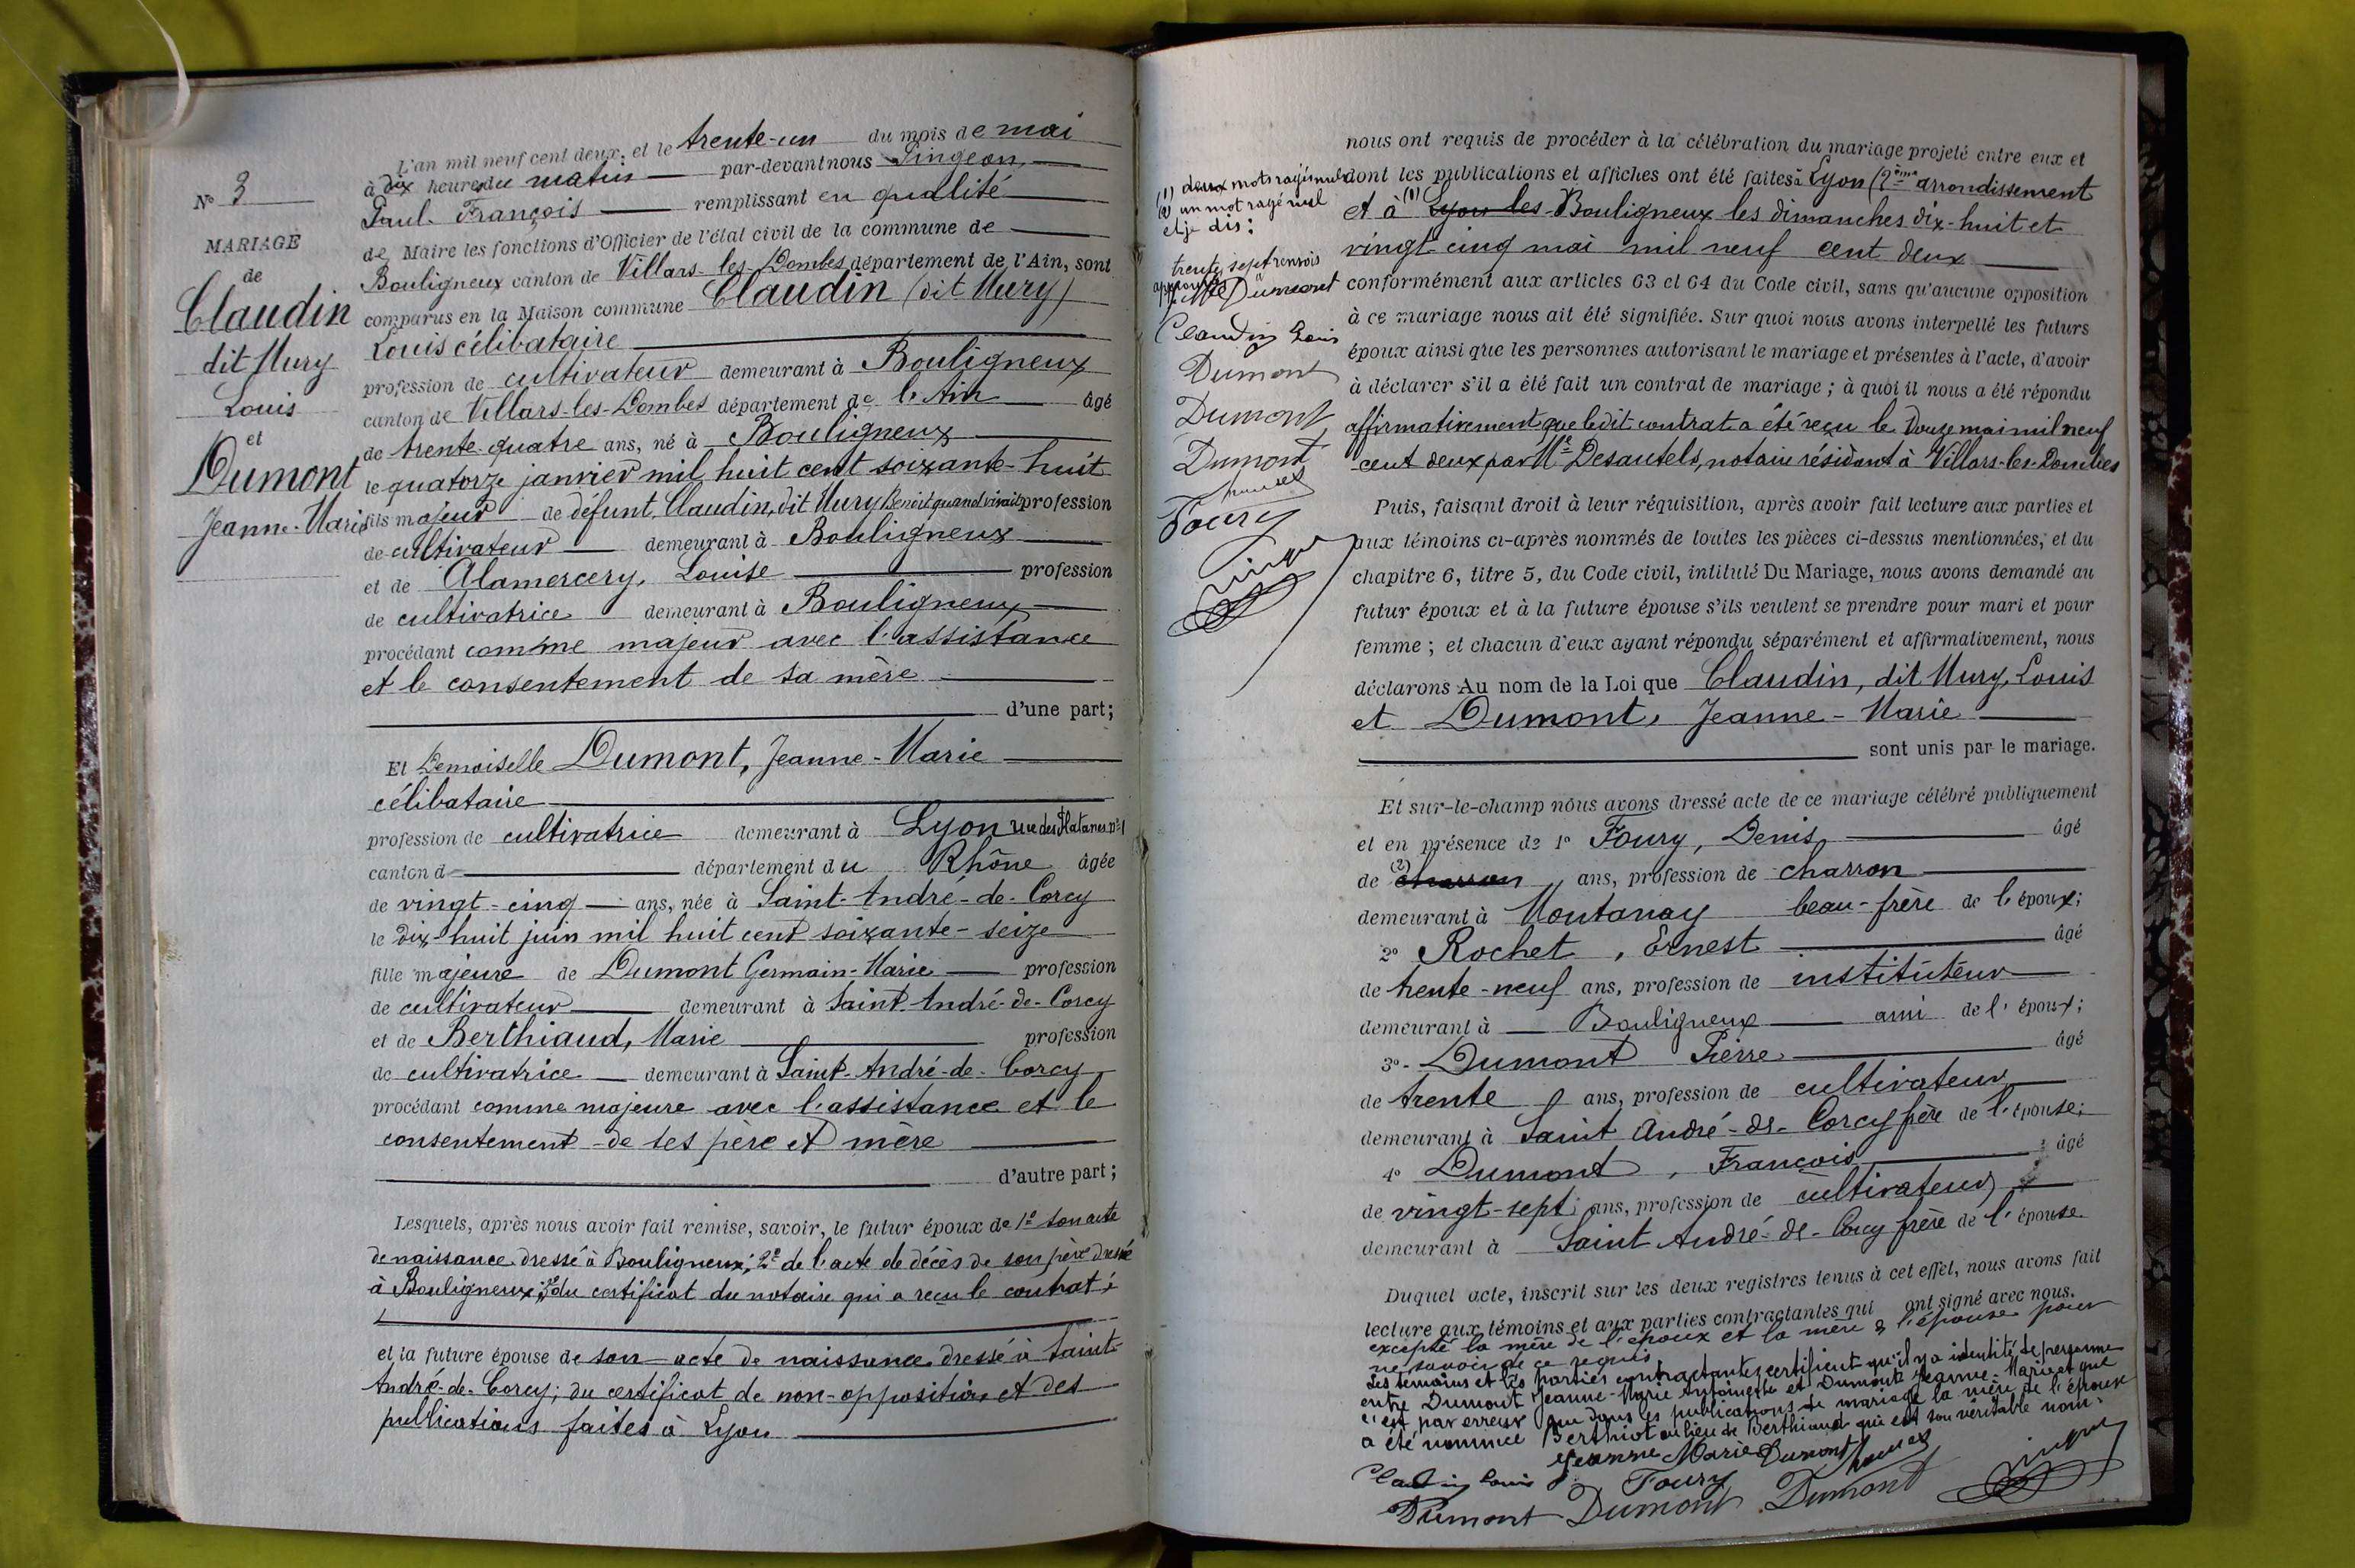 N° 3
MARIAGE
de
Claudin
dit Mury
Louis
et
Dumont
Jeanne-Marie
L'an mil neuf cent deux, et le trente-un du mois de mai
à dix heures du matin par-devant nous Pingeon,
Paul François remplissant en qualité
de Maire les fonctions d'Officier de l'état civil de la commune de
Bouligneux canton de Villars-les-Dombes département de l'Ain, sont
comparus en la Maison commune Claudin (dit Mury)
Louis célibataire
profession de cultivateur demeurant à Bouligneux
canton de Villars-les-Dombes département de l'Ain âgé
de trente-quatre ans, né à Bouligneux
le quatorze janvier mil huit cent soixante-huit
fils majeur de défunt, Claudin, dit Mury Benoit quand vivait profession
de cultivateur demeurant à Bouligneux
et de Alamercery, Louise profession
de cultivatrice demeurant à Bouligneux
procédant comme majeur avec l'assistance
et le consentement de sa mère
d'une part;
Et Demoiselle Dumont, Jeanne-Marie
célibataire
profession de cultivatrice demeurant à Lyon rue des Platanes n° 1
canton d département du Rhône âgée
de vingt-cinq ans, née à Saint-André-de-Corcy
le dix-huit juin mil huit cent soixante-seize
fille majeure de Dumont Germain-Marie profession
de cultivateur demeurant à Saint-André-de-Corcy
et de Berthiaud, Marie profession
de cultivatrice demeurant à Saint-André-de-Corcy
procédant comme majeure avec l'assistance et le
consentement de ses père et mère
d'autre part;
Lesquels, après nous avoir fait remise, savoir, le futur époux de 1° son acte
de naissance dressé à Bouligneux; 2° de l'acte de décès de son père dressé
à Bouligneux; 3° du certificat du notaire qui a reçu le contrat;
et la future épouse de son acte de naissance dressé à Saint-
André-de-Corcy; du certificat de non-opposition et des
publications faites à Lyon
(1) deux mots rayés nuls
(2) un mot rayé nul
et je dis:
trente sept renvois
approuvés
JM Dumont
Claudin Louis
Dumont
Dumont
Dumont
Foury
nous ont requis de procéder à la célébration du mariage projeté entre eux et
dont les publications et affiches ont été faites à Lyon (2ème arrondissement
et à (1) Lyon les Bouligneux les dimanches dix-huit et
vingt-cinq mai mil neuf cent deux
conformément aux articles 63 et 64 du Code civil, sans qu'aucune opposition
à ce mariage nous ait été signifiée. Sur quoi nous avons interpellé les futurs
époux ainsi que les personnes autorisant le mariage et présentes à l'acte, d'avoir
à déclarer s'il a été fait un contrat de mariage; à quoi il nous a été répondu
affirmativement que ledit contrat a été reçu le douze mai mil neuf
cent deux par Me Desautels, notaire résidant à Villars-les-Dombes
Puis, faisant droit à leur réquisition, après avoir fait lecture aux parties et
aux témoins ci-après nommés de toutes les pièces ci-dessus mentionnées, et du
chapitre 6, titre 5, du Code civil, intitulé Du Mariage, nous avons demandé au
futur époux et à la future épouse s'ils veulent se prendre pour mari et pour
femme; et chacun d'eux ayant répondu séparément et affirmativement, nous
déclarons Au nom de la Loi que Claudin, dit Mury, Louis
et Dumont, Jeanne-Marie
sont unis par le mariage.
Et sur-le-champ nous avons dressé acte de ce mariage célébré publiquement
et en présence de 1° Foury, Denis, âgé
de (2) charron ans, profession de charron
demeurant à Montanay beau-frère de l'époux;
2° Rochet, Ernest âgé
de trente-neuf ans, profession de instituteur
demeurant à Bouligneux ami de l'époux;
3° Dumont Pierre âgé
de trente ans, profession de cultivateur
demeurant à Saint André-de-Corcy frère de l'épouse;
4° Dumont, François âgé
de vingt-sept ans, profession de cultivateur
demeurant à Saint-André-de-Corcy frère de l'épouse.
Duquel acte, inscrit sur les deux registres tenus à cet effet, nous avons fait
lecture aux témoins et aux parties contractantes qui ont signé avec nous.
excepté la mère de l'époux et la mère de l'épouse pour
ne savoir de ce requis
Les témoins et les parties contractantes certifient qu'il y a identité de personne
entre Dumont Jeanne-Marie Antoinette et Dumont Jeanne-Marie et que
c'est par erreur que dans les publications de mariage la mère de l'épouse
a été nommée Berthiot au lieu de Berthiaud qui est son véritable nom.
Jeanne-Marie Dumont
Claudin Louis Foury
Dumont Dumont Dumont